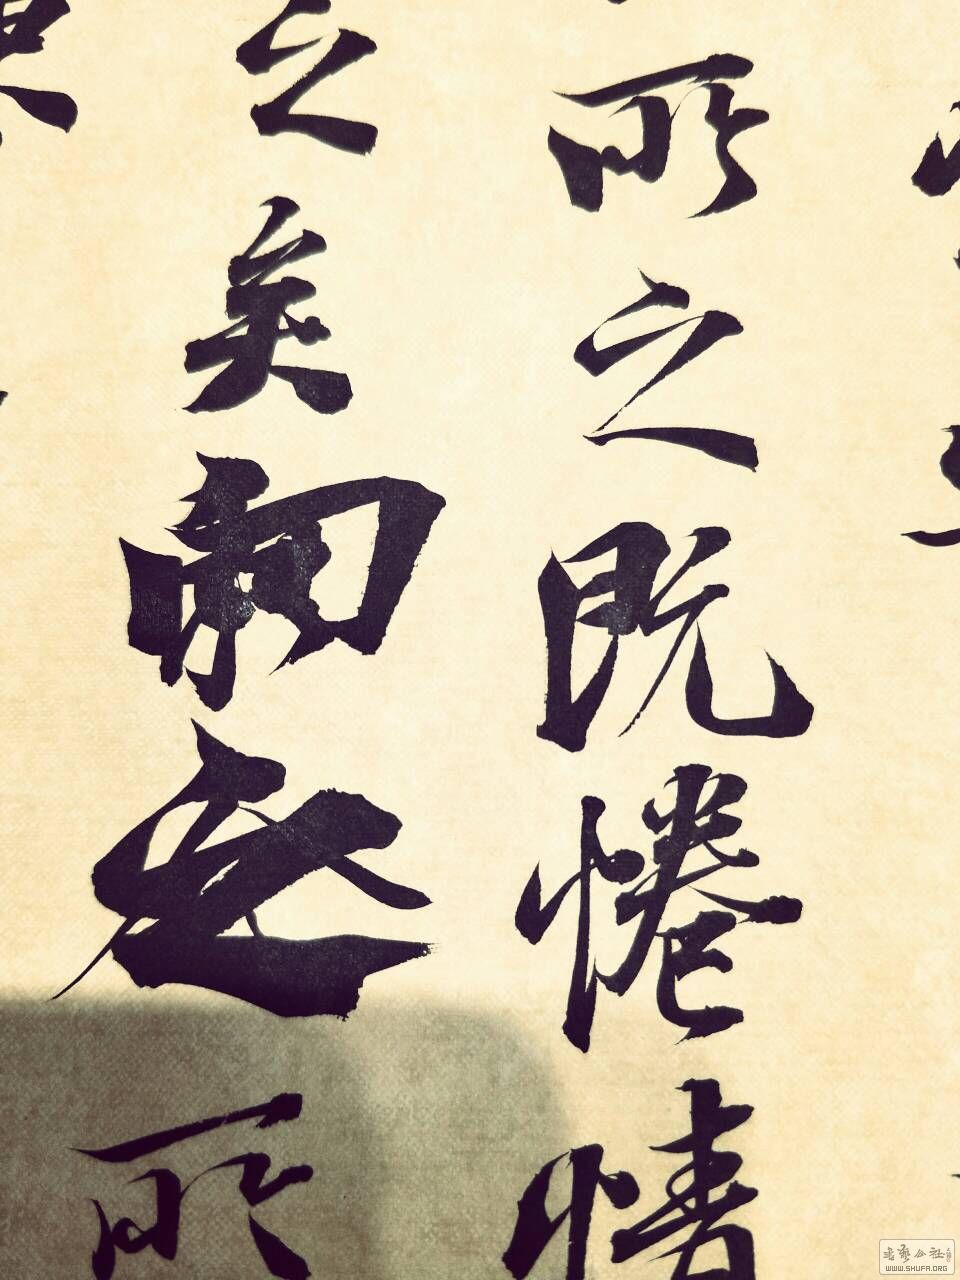 所之既倦情
之矣向之所
書藝公社
WWW.SHUFA.ORG